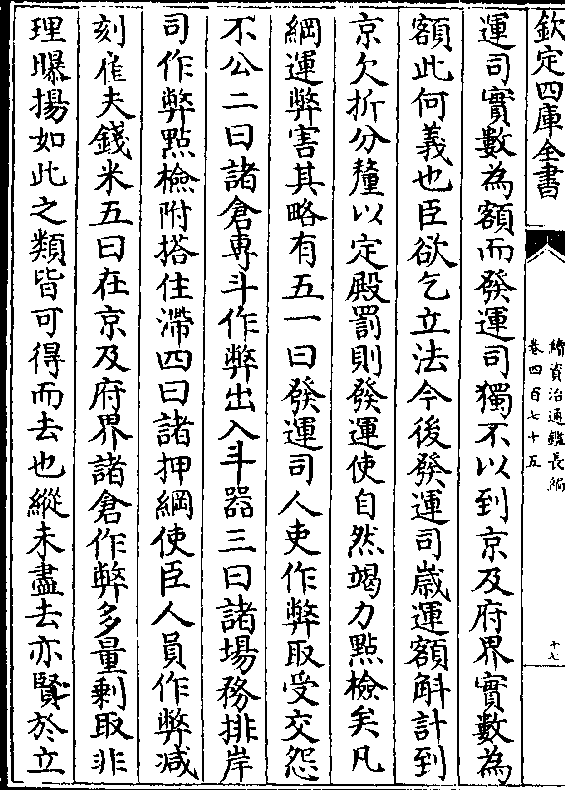 欽定四庫全書
續資治通鑑長編
卷四百七十五
十七
運司實數為額而發運司獨不以到京及府界實數為
額此何義也臣欲乞立法今後發運司歳運額斛計到
京欠折分釐以定殿罰則發運使自然竭力點檢矣凡
綱運弊害其略有五一曰發運司人吏作弊取受交怨
不公二曰諸倉專斗作弊出入斗器三曰諸場務排岸
司作弊點檢附搭住滯四曰諸押綱使臣人員作弊減
刻雇夫錢米五曰在京及府界諸倉作弊多量剩取非
理曝揚如此之類皆可得而去也縱未盡去亦賢於立